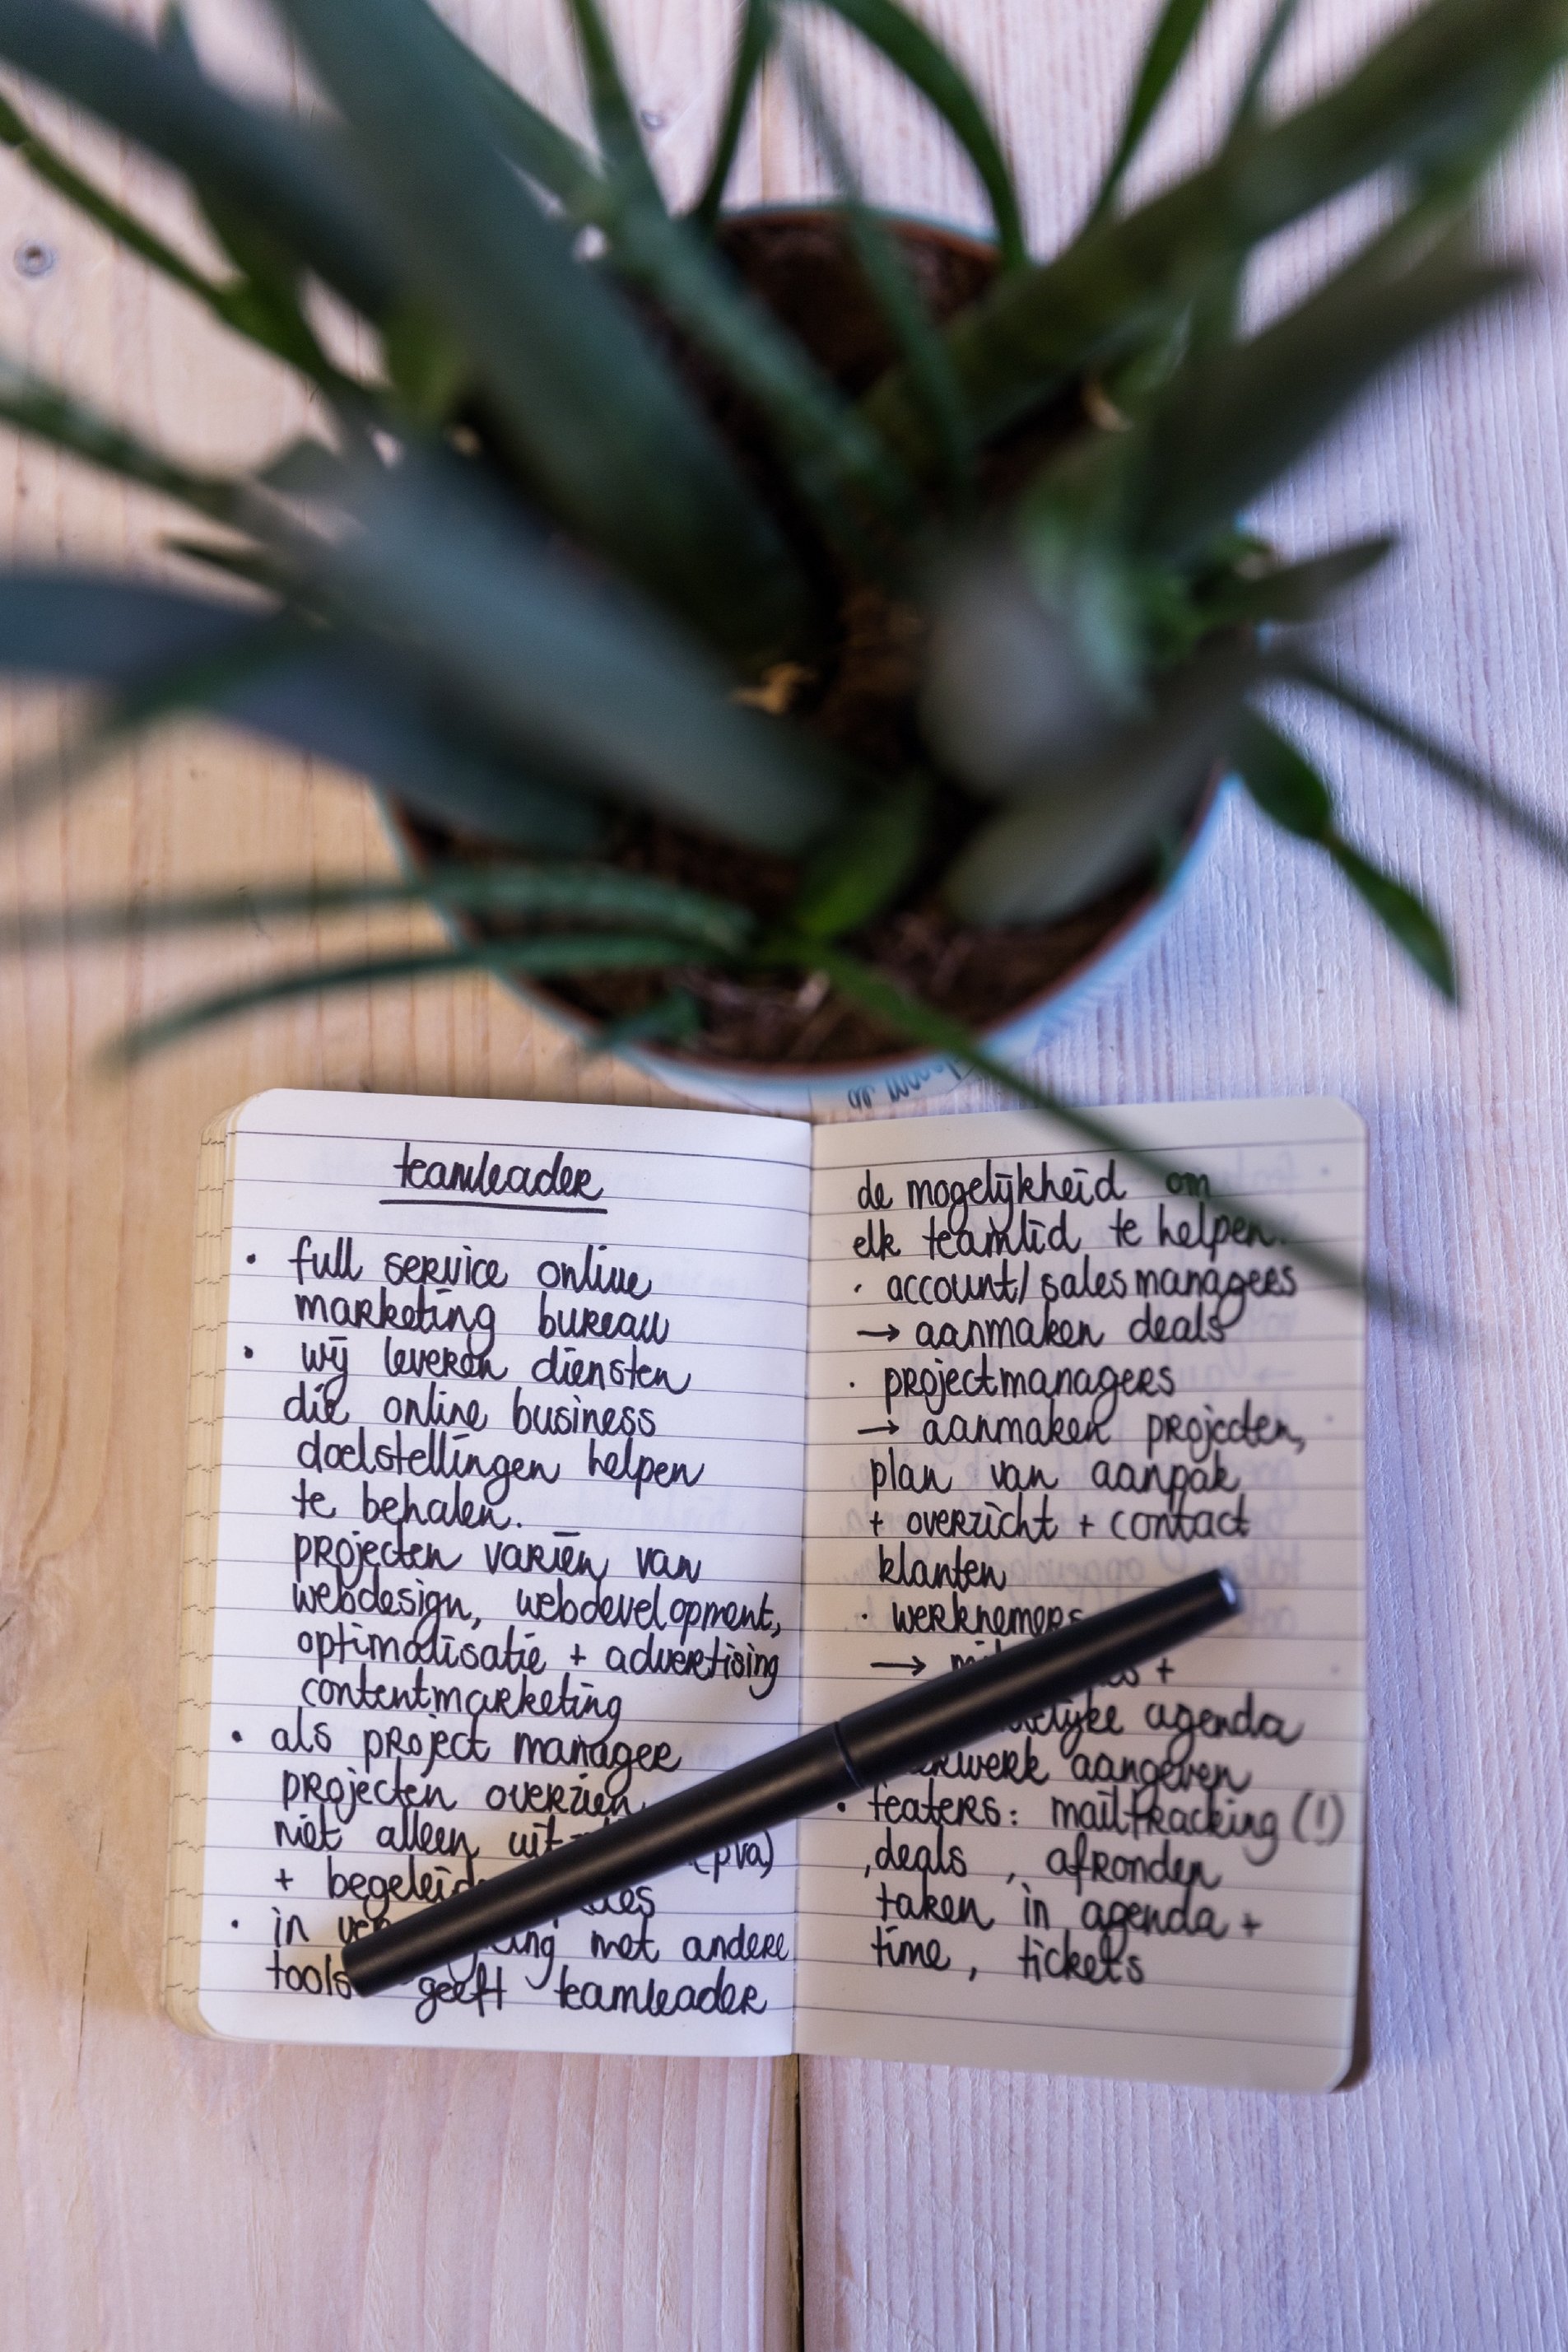 teamleader
• full service online
marketing bureau
• wij leveren diensten
die online business
doelstellingen helpen
te behalen.
projecten variën van
webdesign, webdevelopment,
optimalisatie + advertising
contentmarketing
• als project manager
projecten overzien
niet alleen (pva)
+
• in met andere
tools geeft teamleader
de mogelijkheid om
elk teamlid te helpen.
• account/sales managers
→ aanmaken deals
• projectmanagers
→ aanmaken projecten,
plan van aanpak
+ overzicht + contact
klanten
• werknemers
→ +
agenda
aangeven
• featers: mailtracking (!)
,deals , afronden
taken in agenda +
time, tickets